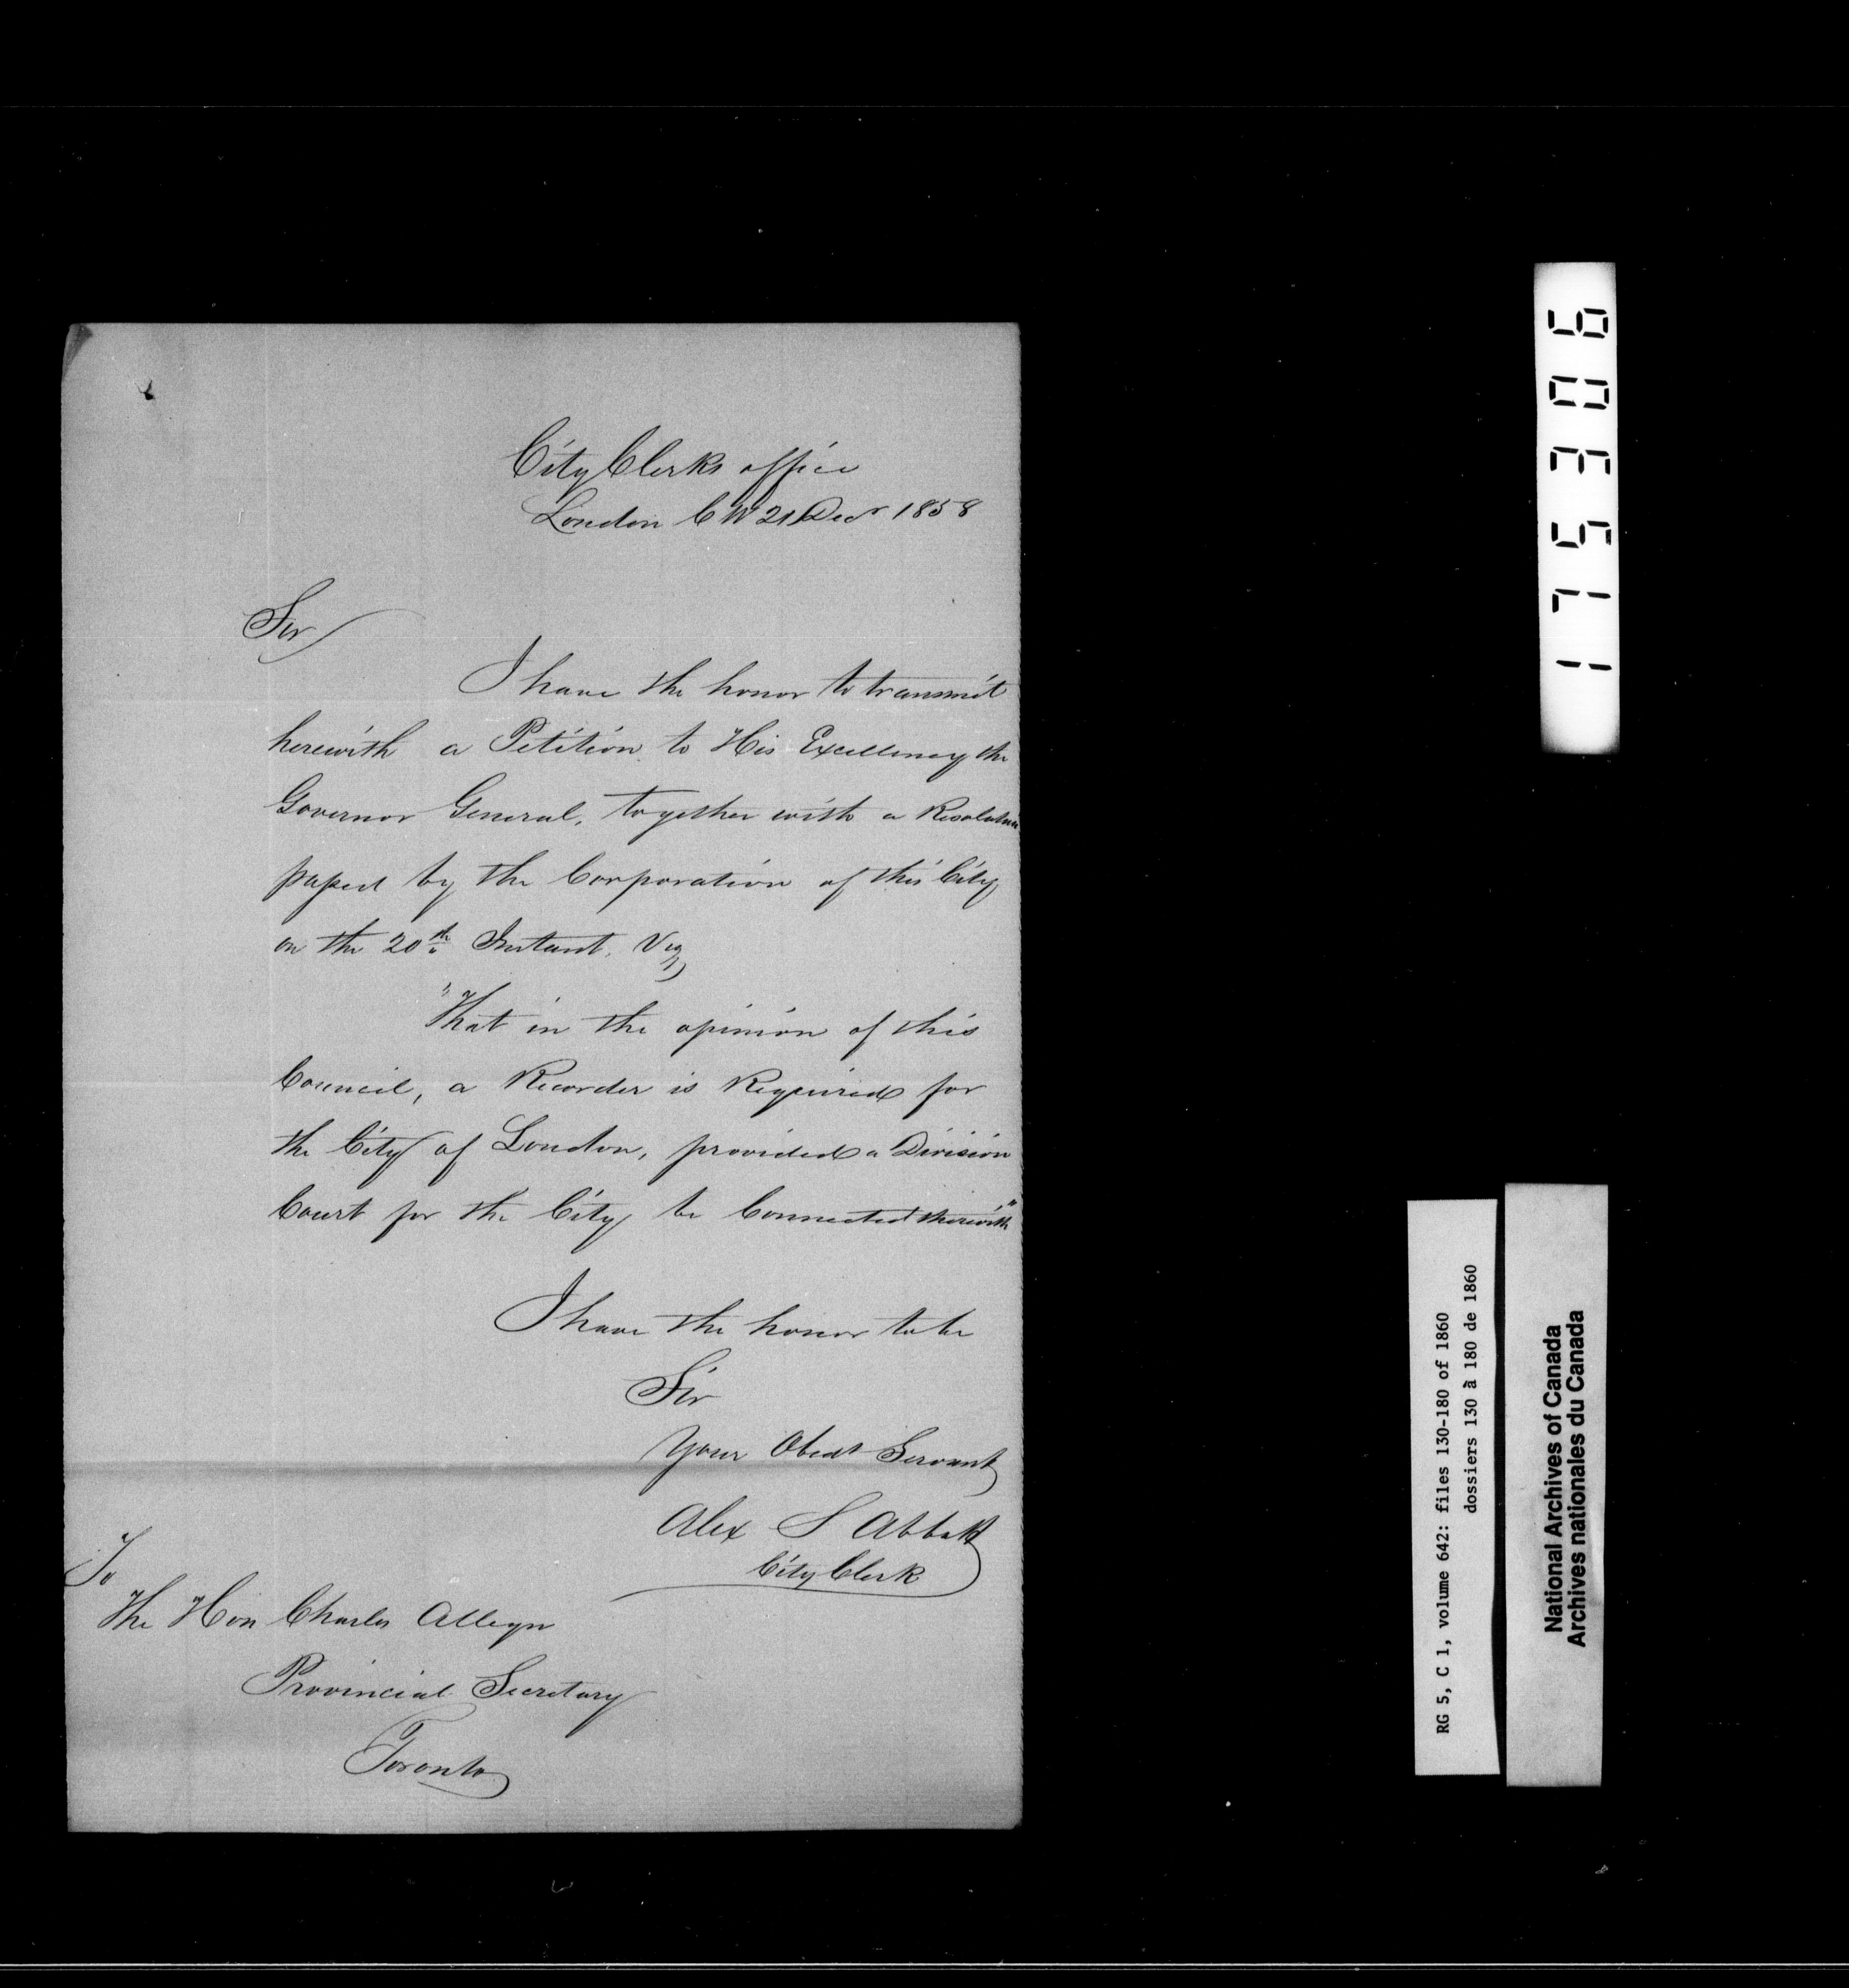 City Clerks office
London C W 21 Decr 1858
Sir
I have the honor to transmit
herewith a Petition to His Excellency the
Governor General, together with a Resolution
passed by the Corporation of this City
on the 20th Instant. Viz
"That in the opinion of this
Council, a Recorder is Required for
the City of London, provided a Division
Court for the City be Connected therewith"
I have the honor to be
Sir
Your Obedt Servant
Alex S Abbott
City Clerk
To
The Hon Charles Alleyn
Provincial Secretary
Toronto
175306
RG 5, C 1, volume 642: files 130-180 of 1860
dossiers 130 à 180 de 1860
National Archives of Canada
Archives nationales du Canada